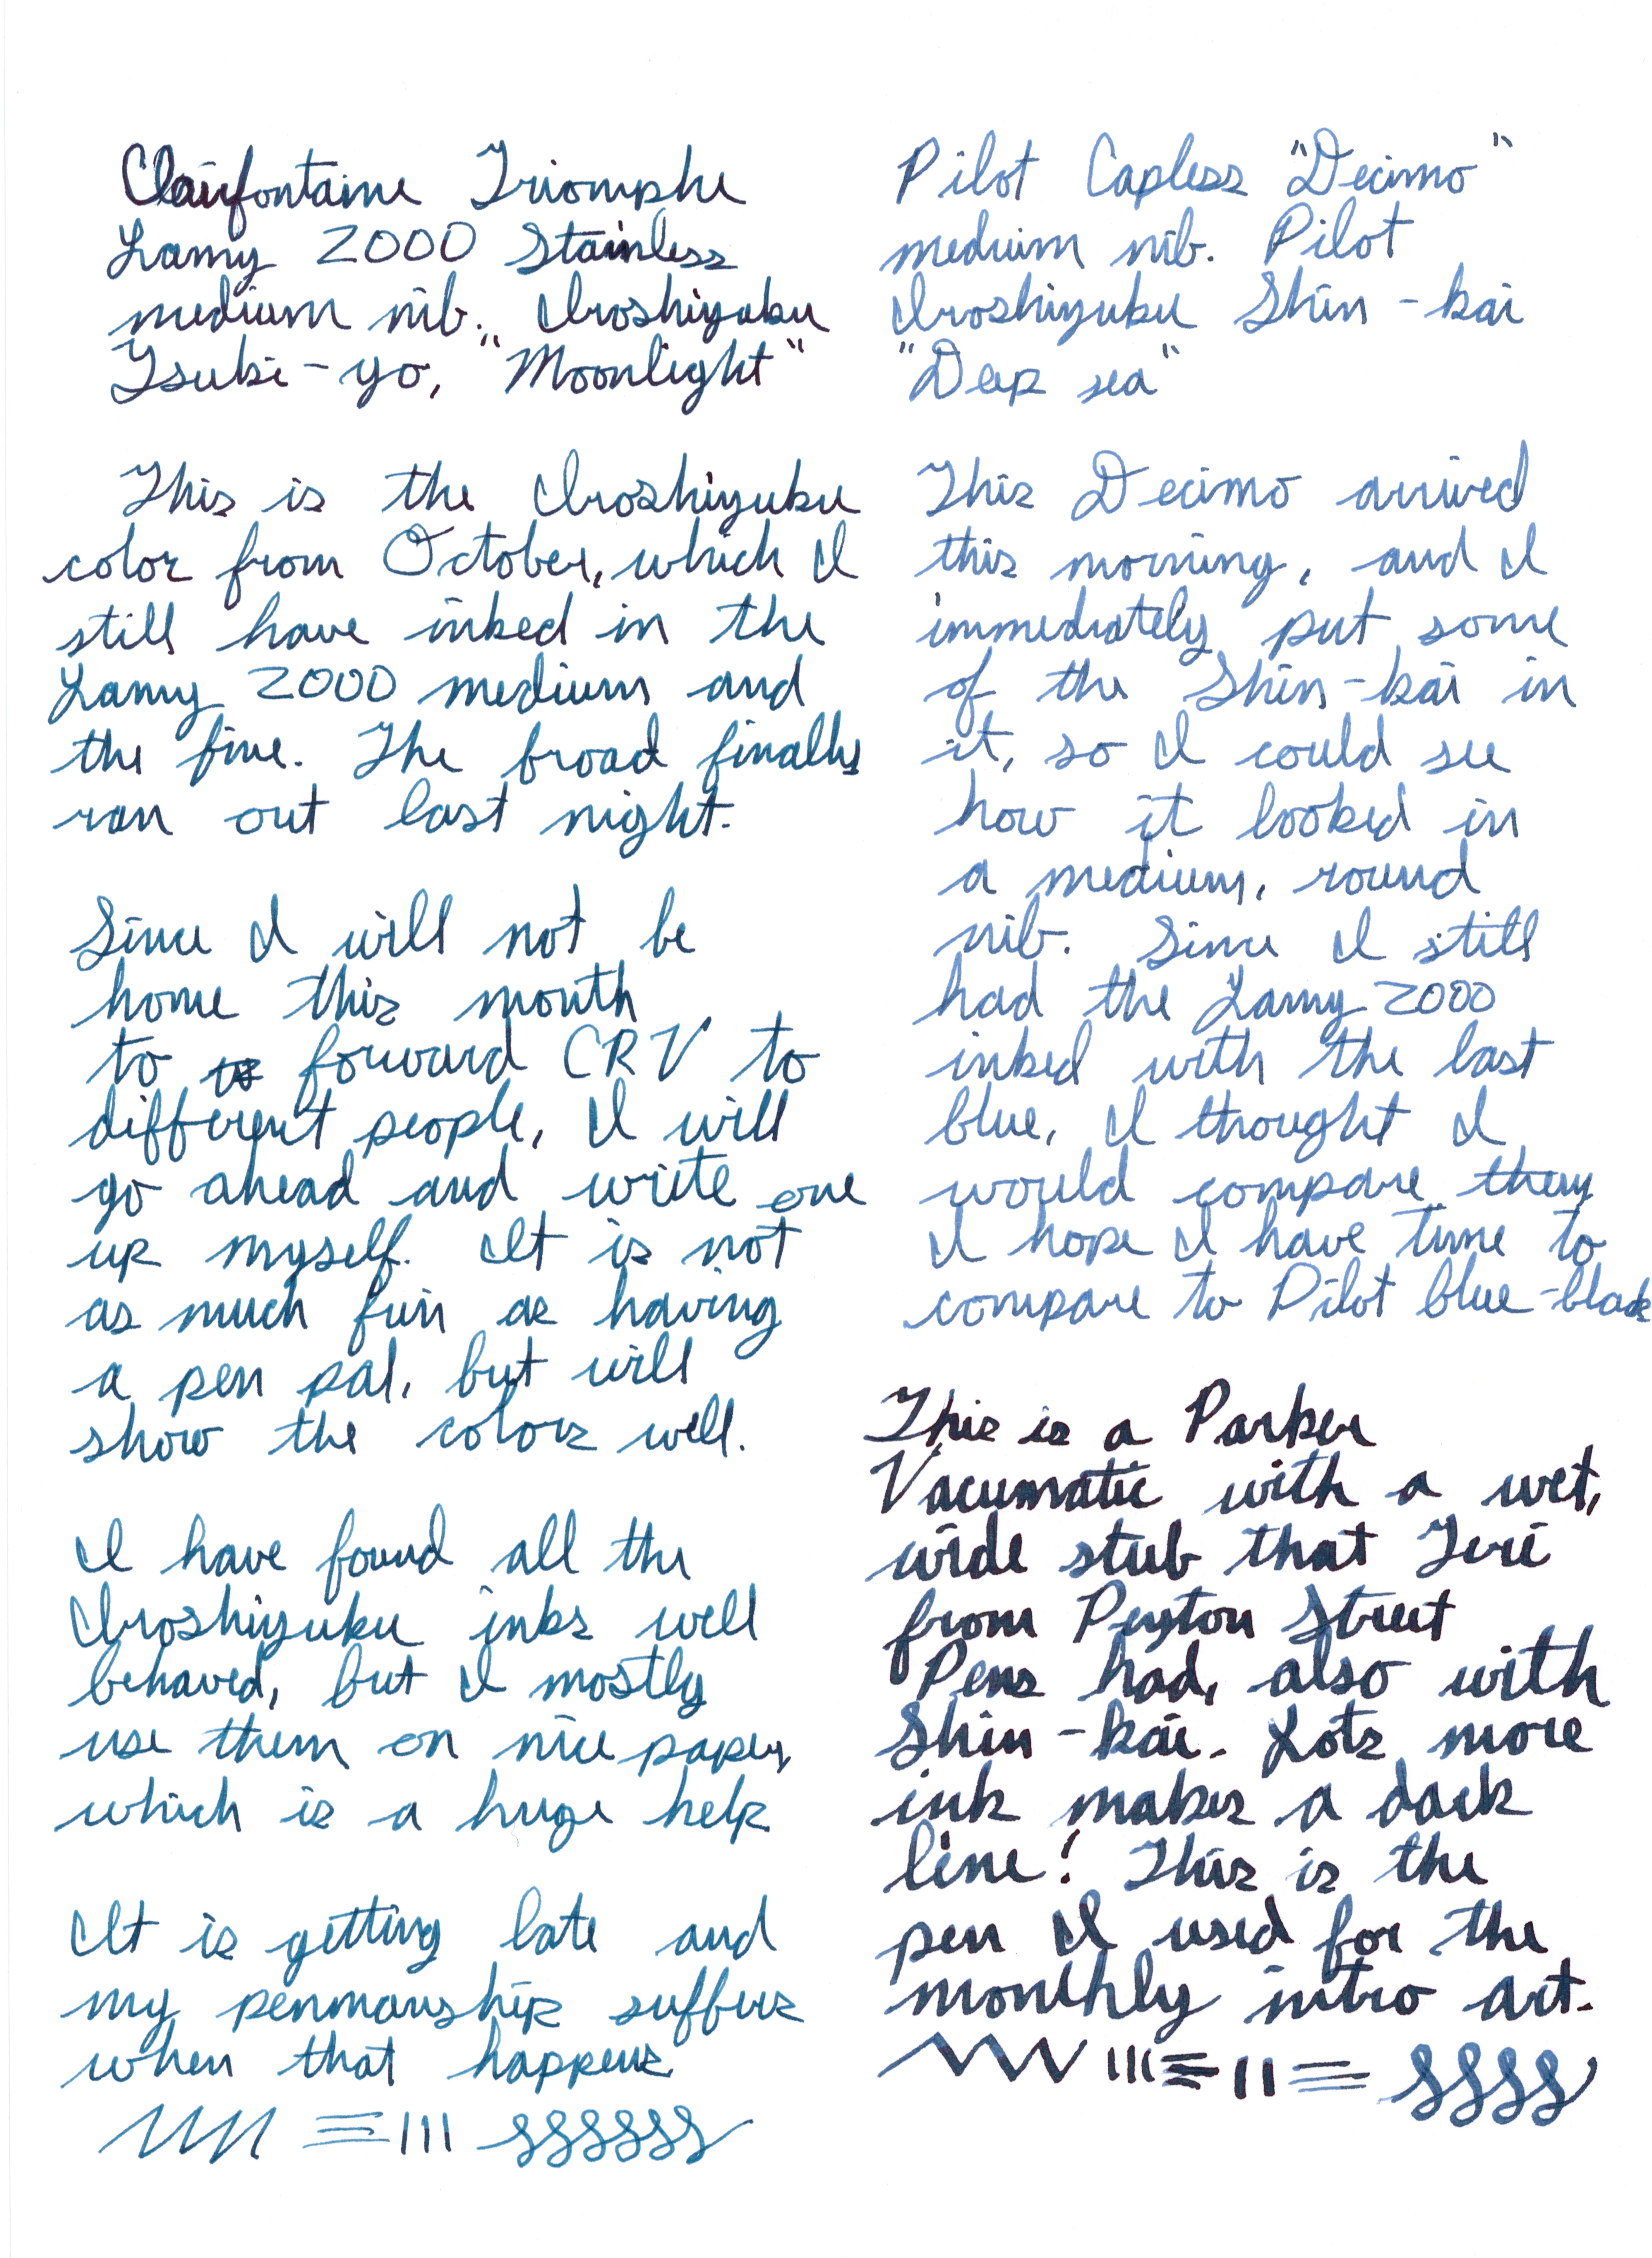 Clairfontaine Triomphe
Lamy 2000 Stainless
medium nib. Iroshizuku
Tsuki-yo, "Moonlight"
This is the Iroshizuku
color from October, which I
still have inked in the
Lamy 2000 medium and
the fine. The broad finally
ran out last night.
Since I will not be
home this month
to forward CRV to
different people, I will
go ahead and write one
up myself. It is not
as much fun as having
a pen pal, but will
show the colors well.
I have found all the
Iroshizuku inks well
behaved, but I mostly
use them on nice paper,
which is a huge help.
It is getting late and
my penmanship suffers
when that happens.
Pilot Capless "Decimo"
medium nib. Pilot
Iroshizuku Shin-kai
"Deep sea"
This Decimo arrived
this morning, and I
immediately put some
of the Shin-kai in
it, so I could see
how it looked in
a medium, round
nib. Since I still
had the Lamy 2000
inked with the last
blue, I thought I
would compare them
I hope I have time to
compare to Pilot blue-black
This is a Parker
Vacumatic with a wet,
wide stub that Teri
from Peyton Street
Pens had, also with
Shin-kai. Lots more
ink makes a dark
line! This is the
pen I used for the
monthly intro art.